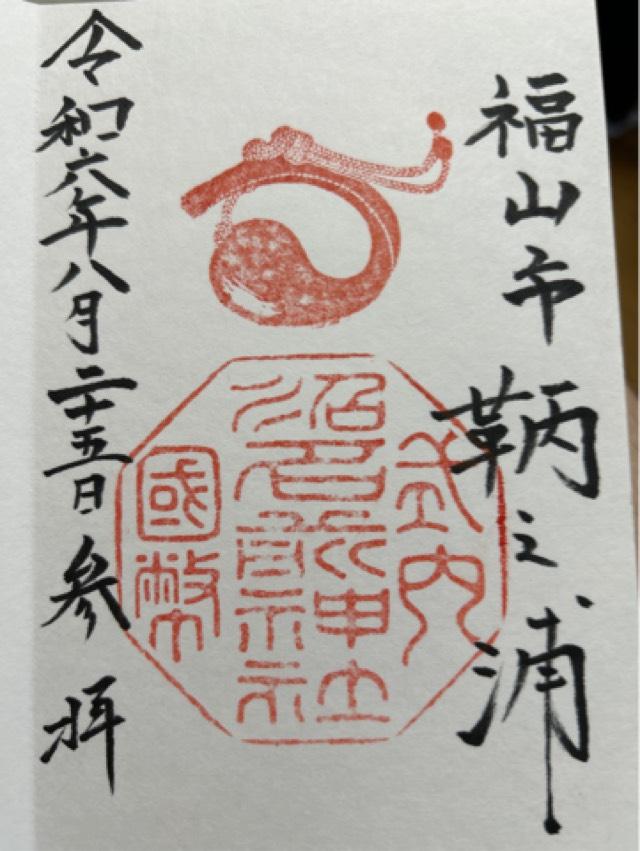 福山市 鞆之浦
式内
沼名前神社
國幣
令和六年八月二十五日 参拝